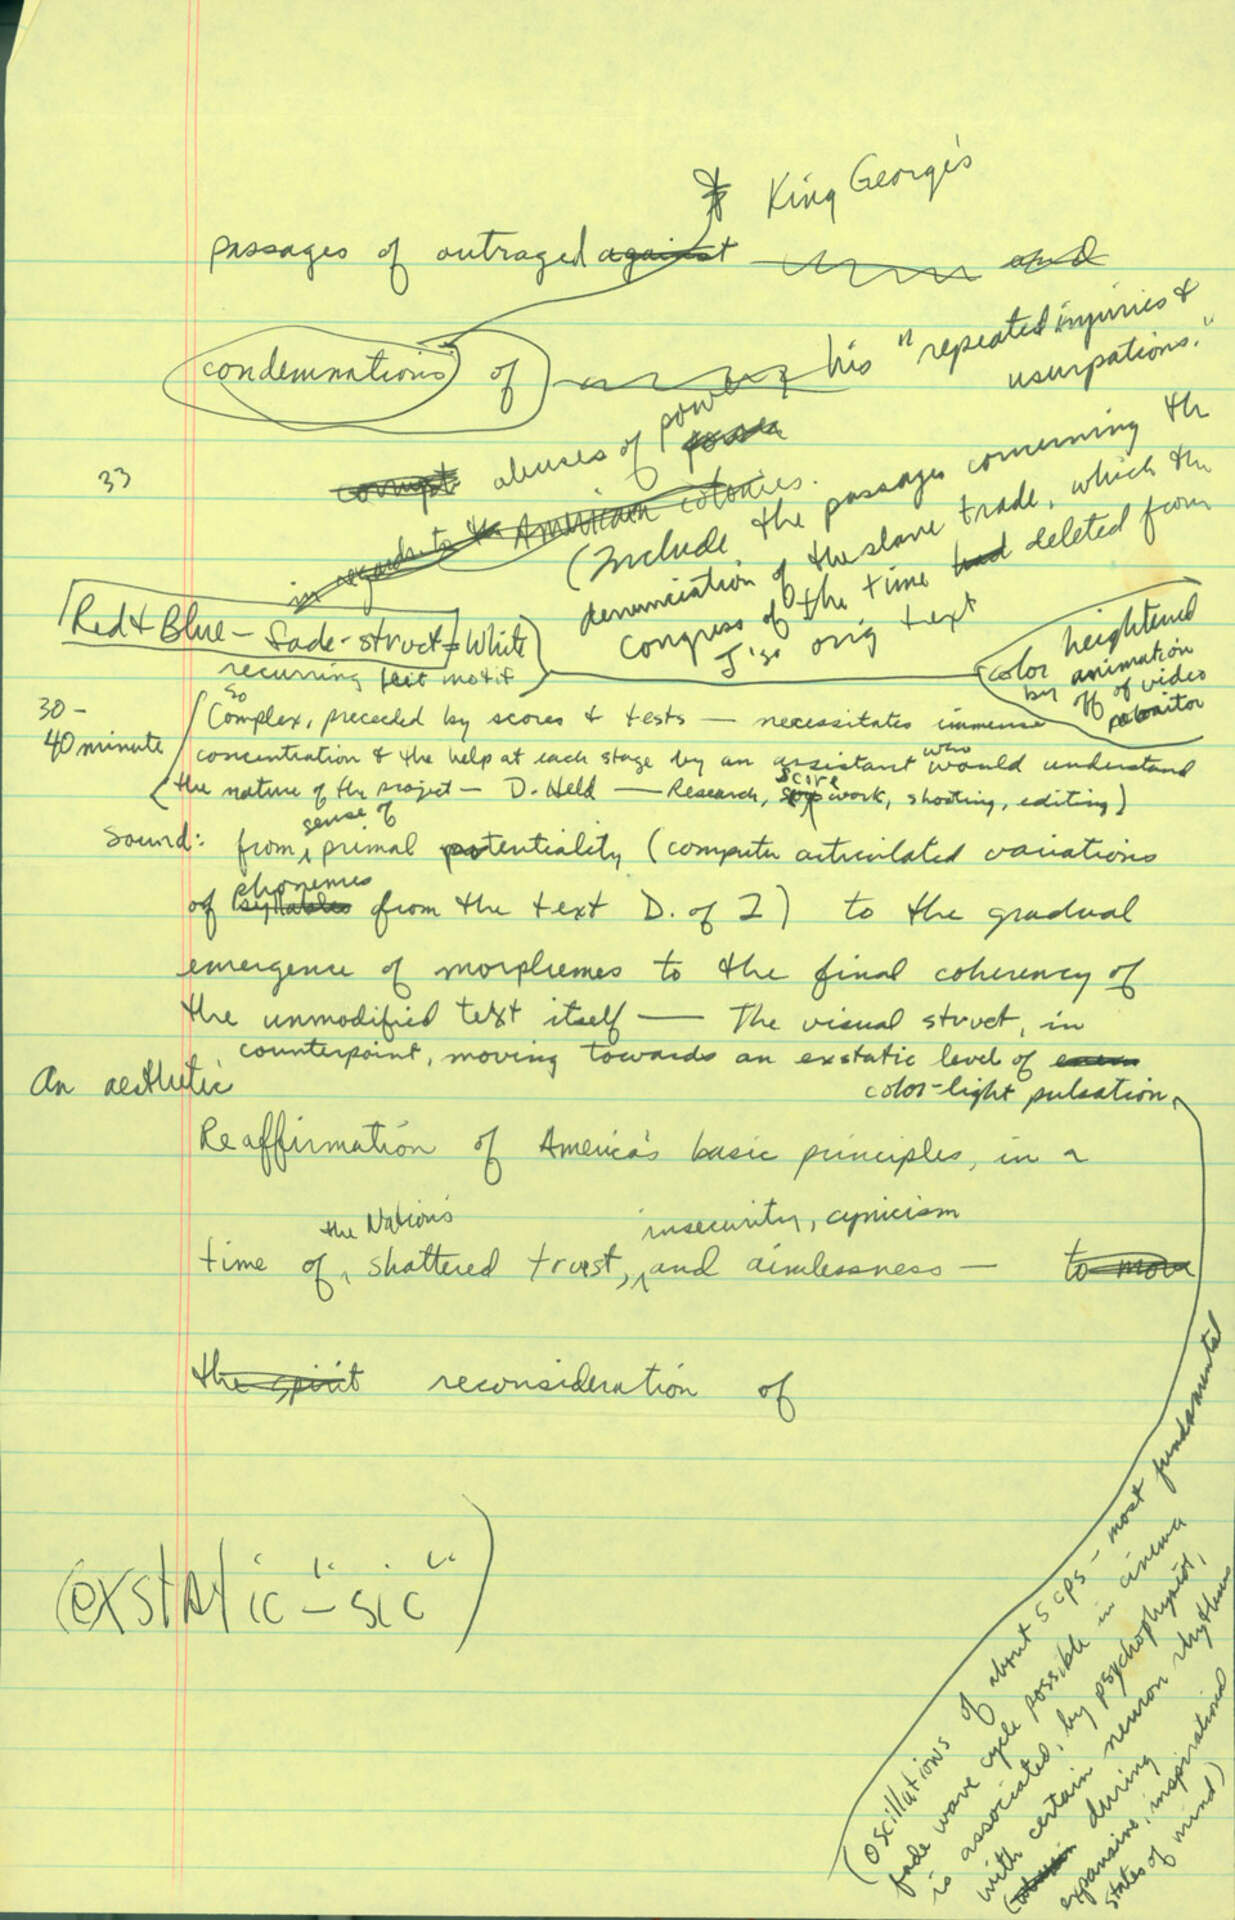 King George's
passages of outraged against and
condemnations of his "repeated injuries &
usurpations."
corrupt abuses of power
in regards to the American colonies.
33
(Include the passages concerning the
denunciation of the slave trade, which the
Congress of the time had deleted from
J's orig text
Red & Blue - fade-struct = White
recurring leit motif
color heightened
by animation
off of video
monitor
30-
40 minute
So
Complex, preceded by scores & tests — necessitates immense
concentration & the help at each stage by an assistant who would understand
the nature of the project — D. Held — Research, score work, shooting, editing)
Sound: from sense of primal potentiality (computer articulated variations
of syllables phonemes from the text D. of I) to the gradual
emergence of morphemes to the final coherency of
the unmodified text itself — The visual struct, in
counterpoint, moving towards an exstatic level of
color-light pulsation
An aesthetic
Reaffirmation of America's basic principles, in a
time of the Nation's shattered trust, insecurity, cynicism and aimlessness — to move
the spirit reconsideration of
(exstatic - "sic")
(oscillations of about 5 cps - most fundamental
fade wave cycle possible in cinema
is associated, by psychophysist,
with certain neuron rhythms
during
expansive, inspirational
states of mind)